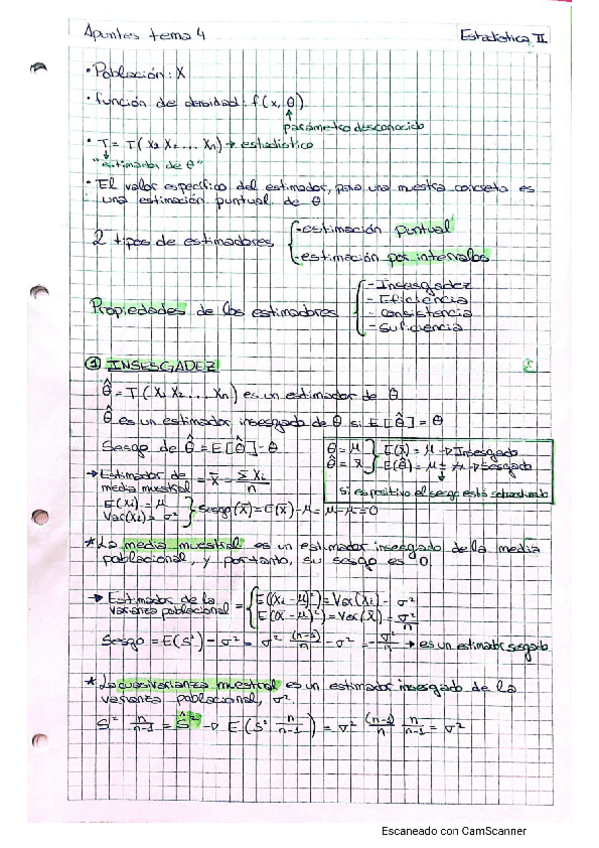 Apuntes tema 4
Estadística II
• Población: X
• función de densidad: f(x, θ)
parámetro desconocido
• T = T(X₁ X₂ ... Xn) → estadístico
"estimador de θ"
• El valor específico del estimador, para una muestra concreta es
una estimación puntual de θ
2 tipos de estimadores { -estimación puntual
-estimación por intervalos
Propiedades de los estimadores { - Insesgadez
- Eficiencia
- consistencia
- suficiencia
① INSESGADEZ
θ̂ = T(X₁ X₂ ... Xn) es un estimador de θ
θ̂ es un estimador insesgado de θ si E[θ̂] = θ
Sesgo de θ̂ = E[θ̂] - θ
θ = μ } E(x̄) = μ → Insesgado
θ̂ = x̄ } E(θ̂) = μ ± → Sesgado
si es positivo el sesgo está
→ Estimador de
media muestral = x̄ = Σxi / n
E(xi) = μ
Var(xi) = σ² } Sesgo(x̄) = E(x̄) - μ = μ - μ = 0
* La media muestral es un estimador insesgado de la media
poblacional, y por tanto, su sesgo es 0.
→ Estimador de la
varianza poblacional = { E((xi - μ)²) = Var(xi) = σ²
E((x̄ - μ)²) = Var(x̄) = σ²/n
Sesgo = E(S²) - σ² = σ² (n-1)/n - σ² = - σ²/n → es un estimador sesgado
* La cuasivarianza muestral es un estimador insesgado de la
varianza poblacional, σ².
S² n/n-1 = Ŝ² → E(S² n/n-1) = σ² (n-1)/n n/n-1 = σ²
Escaneado con CamScanner